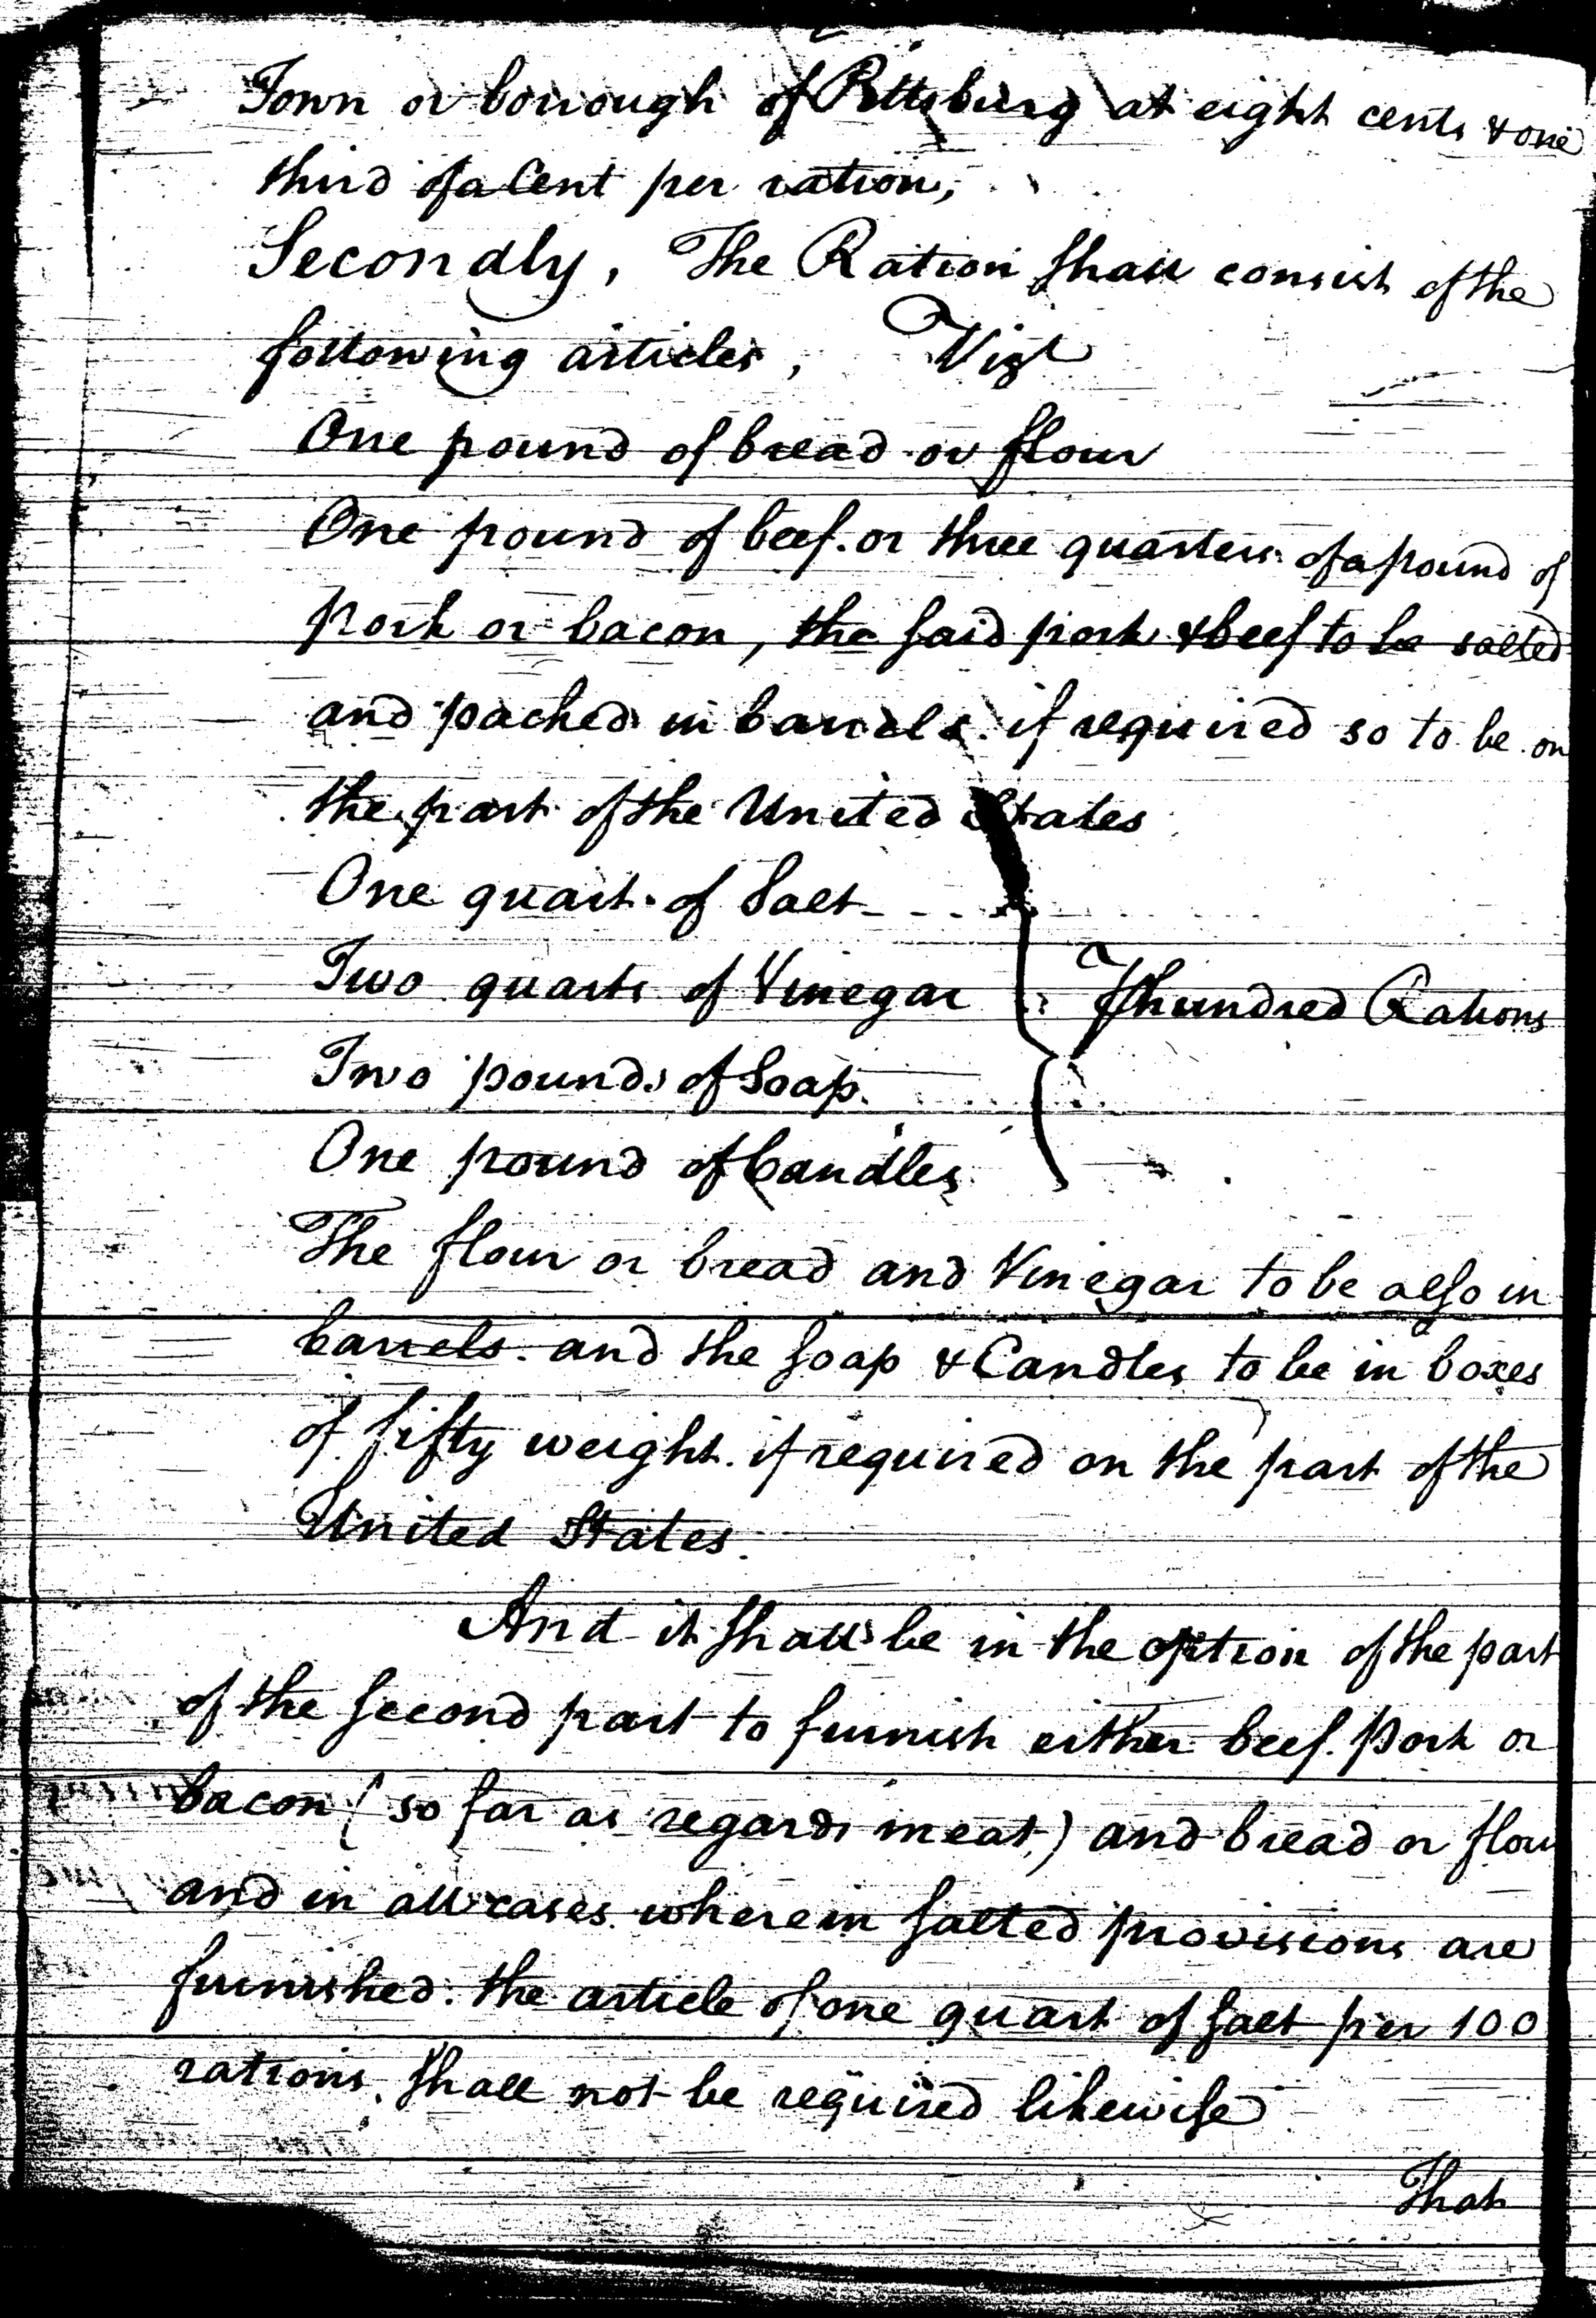 Town or borrough of Pittsburg at eight cents & one
third of a Cent per ration,
Secondly, The Ration shall consist of the
following articles, Vizt
One pound of bread or flour
One pound of beef. or three quarters of a pound of
pork or bacon, the said pork & beef to be salted
and packed in barrels. if required so to be on
the part of the United States
One quart of Salt
Two quarts of Vinegar
⅌ hundred Rations
Two pounds of Soap.
One pound of Candles
The flour or bread and Vinegar to be also in
barrels. and the soap & Candles to be in boxes
of fifty weight. if required on the part of the
United States.
And it shall be in the option of the part
of the second part to furnish either beef. pork or
bacon (so far as regards meat,) and bread or flour
and in all cases wherein salted provisions are
furnished. the article of one quart of salt per 100
rations, shall not be required likewise
That